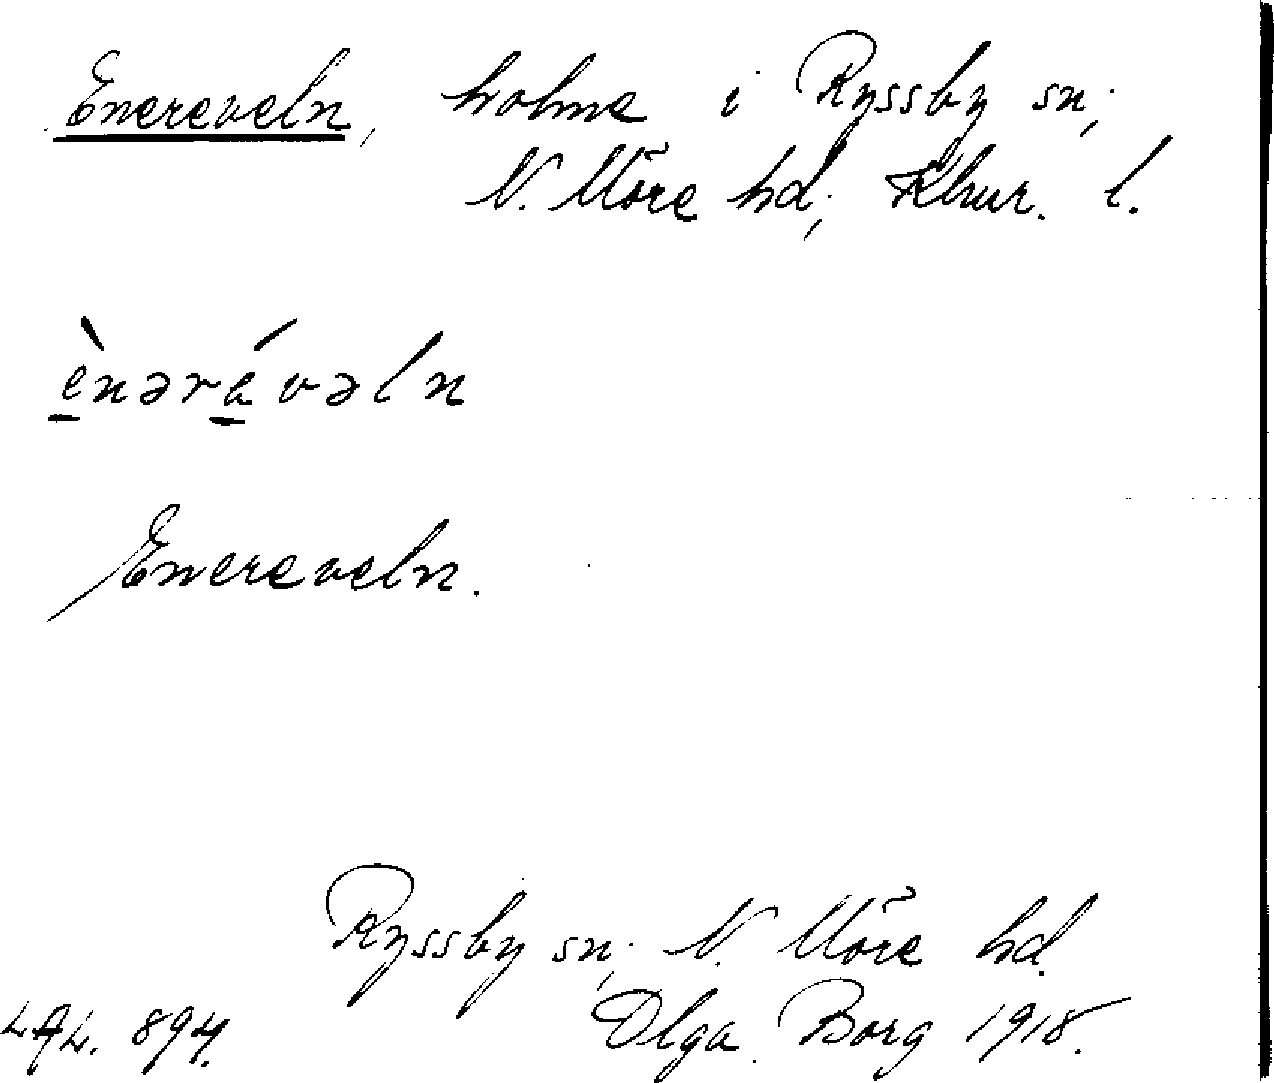 Enereveln, holme i Ryssby sn;
N. Möre hd; Klmr. l.
è̠nərá̠vəln
Enereveln.
Ryssby sn; N. Möre hd.
LAL. 894. Olga Borg 1918.